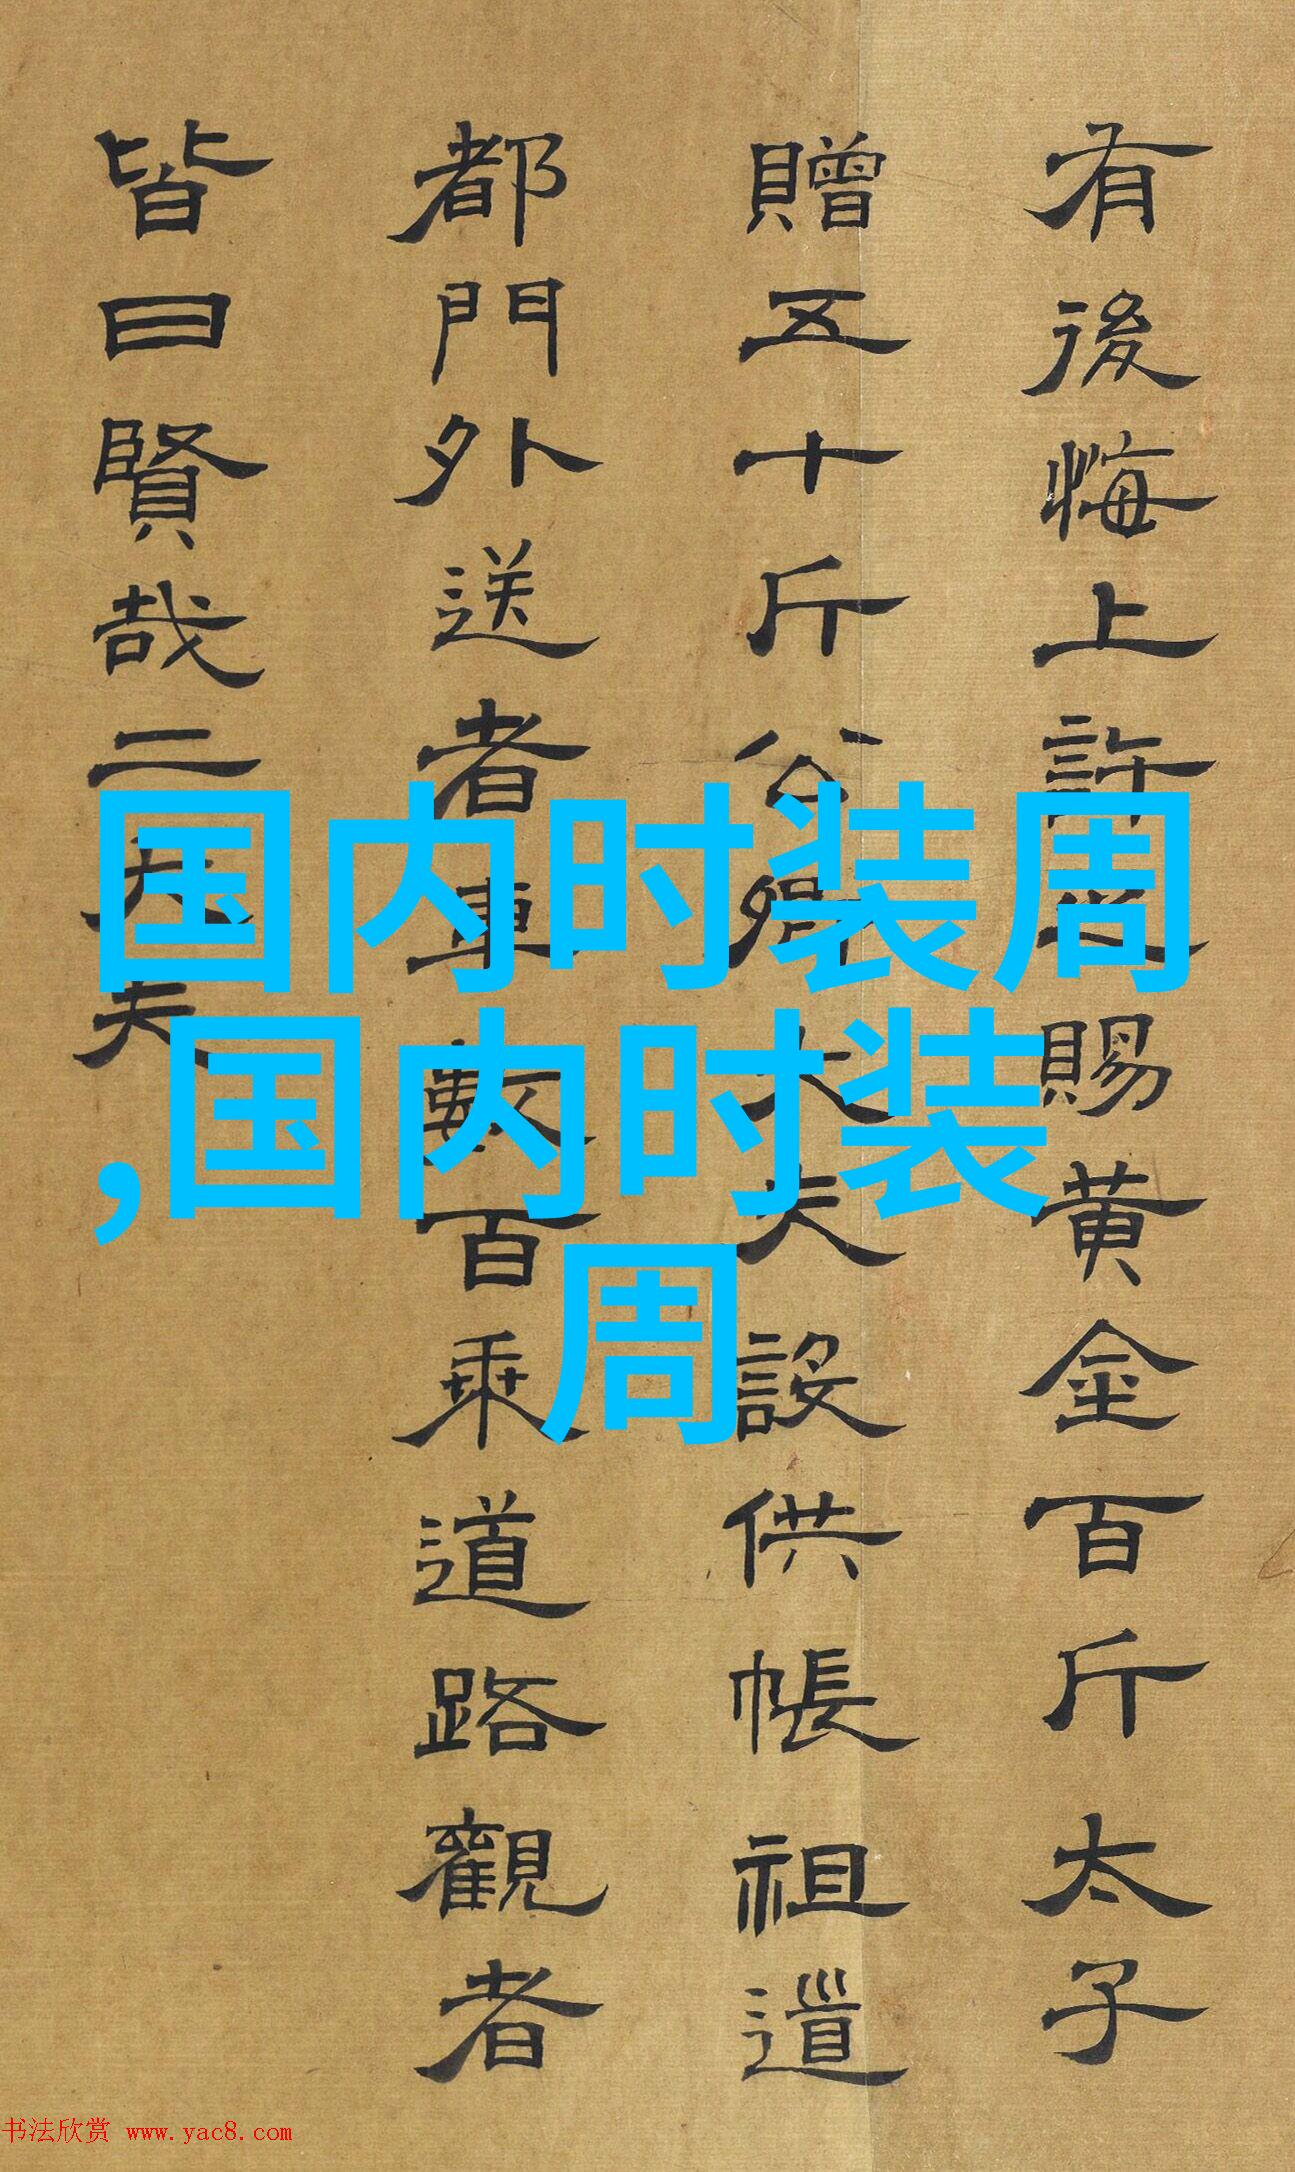 有後悔上許之賜黄金百斤太子
贈五十斤公卿大夫設供帳祖道
都門外送者車數百乘道路觀者
皆曰賢哉二大夫
国内时装周
,国内时装
周
书法欣赏 www.yac8.com